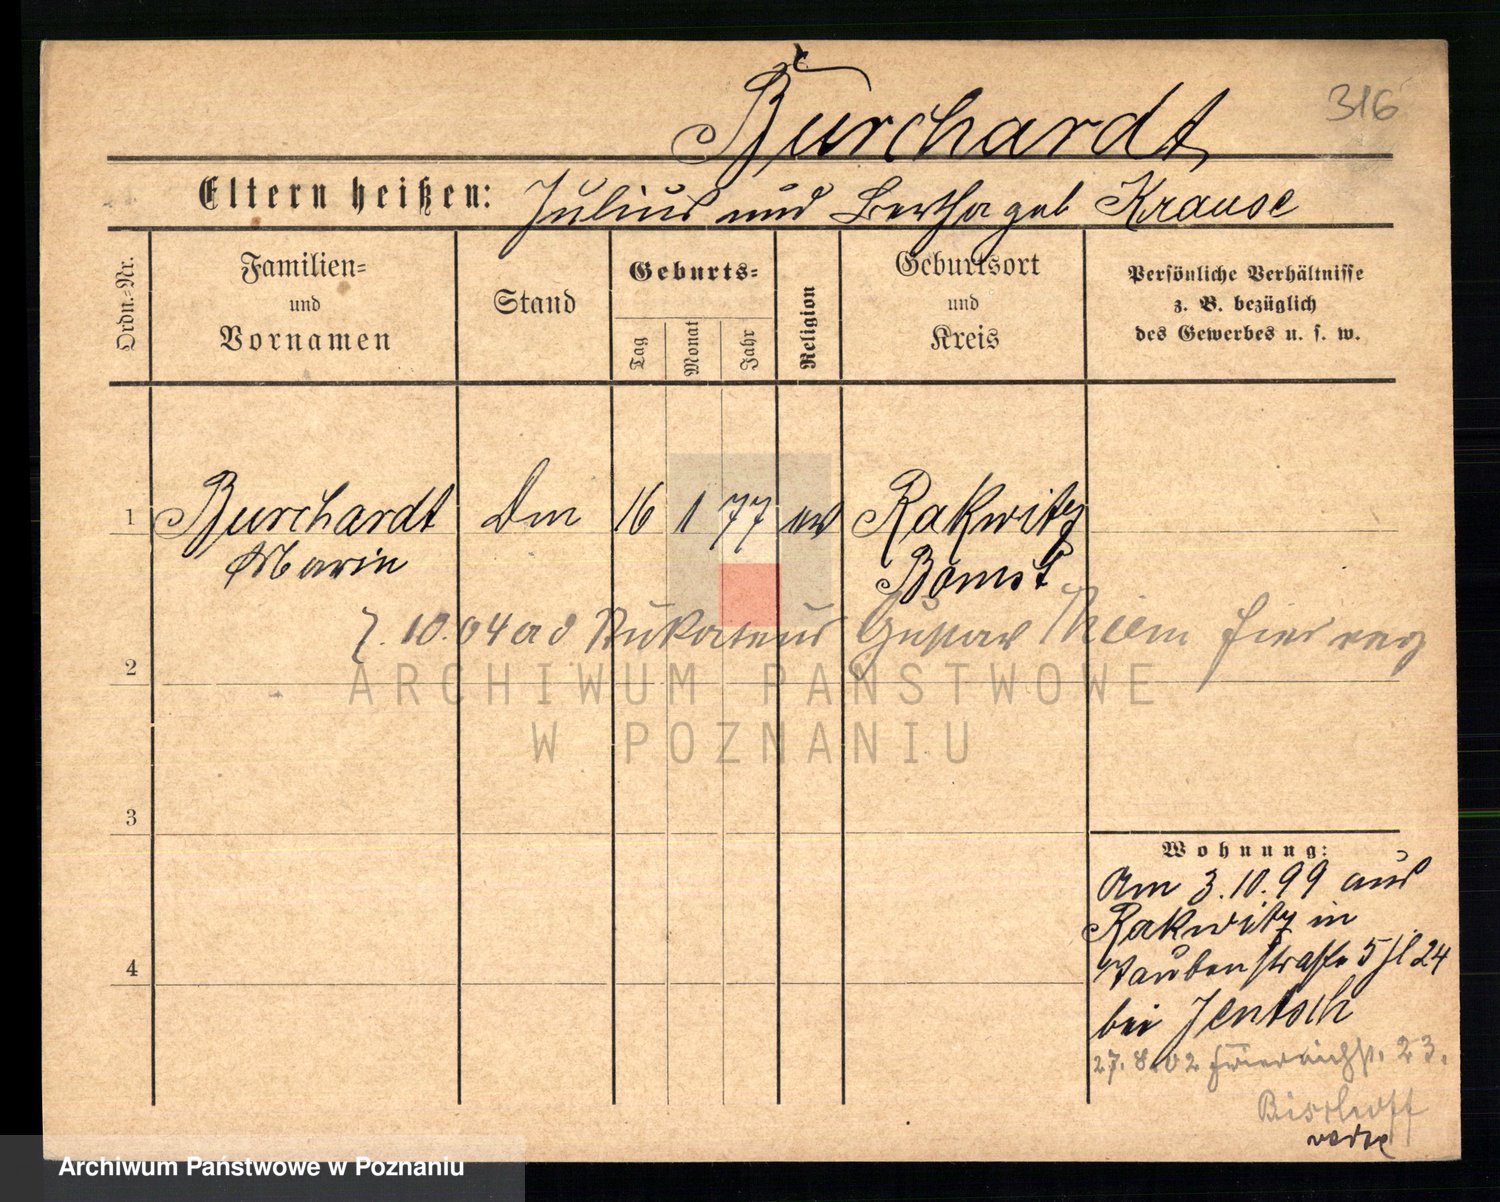 316
Burchardt
Eltern heißen: Julius und Bertha geb Krause
Ordn.-Nr.
Familien- und Vornamen
Stand
Geburts-
Tag
Monat
Jahr
Religion
Geburtsort und Kreis
Persönliche Verhältnisse z. B. bezüglich des Gewerbes u. s. w.
1 Burchardt 16 1 77 ev Rakwitz
Marie Bomst
10.04 Stukateur Gustav Thiem
2
ARCHIWUM PAŃSTWOWE
W POZNANIU
3
4
Wohnung:
Am 3.10.99 aus
Rakwitz in
Taubenstraße 5 24
bei Jentsch
27.8.02 Friedrichst. 23.
Bischoff
Archiwum Państwowe w Poznaniu